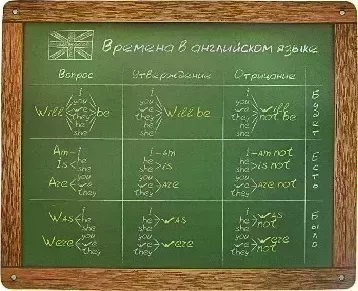 Времена в английском языке
Вопрос Утверждение Отрицание
Will I you we they he she be
I you we they he she Will be
I you we they he she Will not be
Будет
Am I
Is he she
Are you we they
I am
he she is
you we they are
I am not
he she is not
you we they are not
Есть
Was I he she
Were you we they
I he she was
you we they were
I he she was not
you we they were not
Было